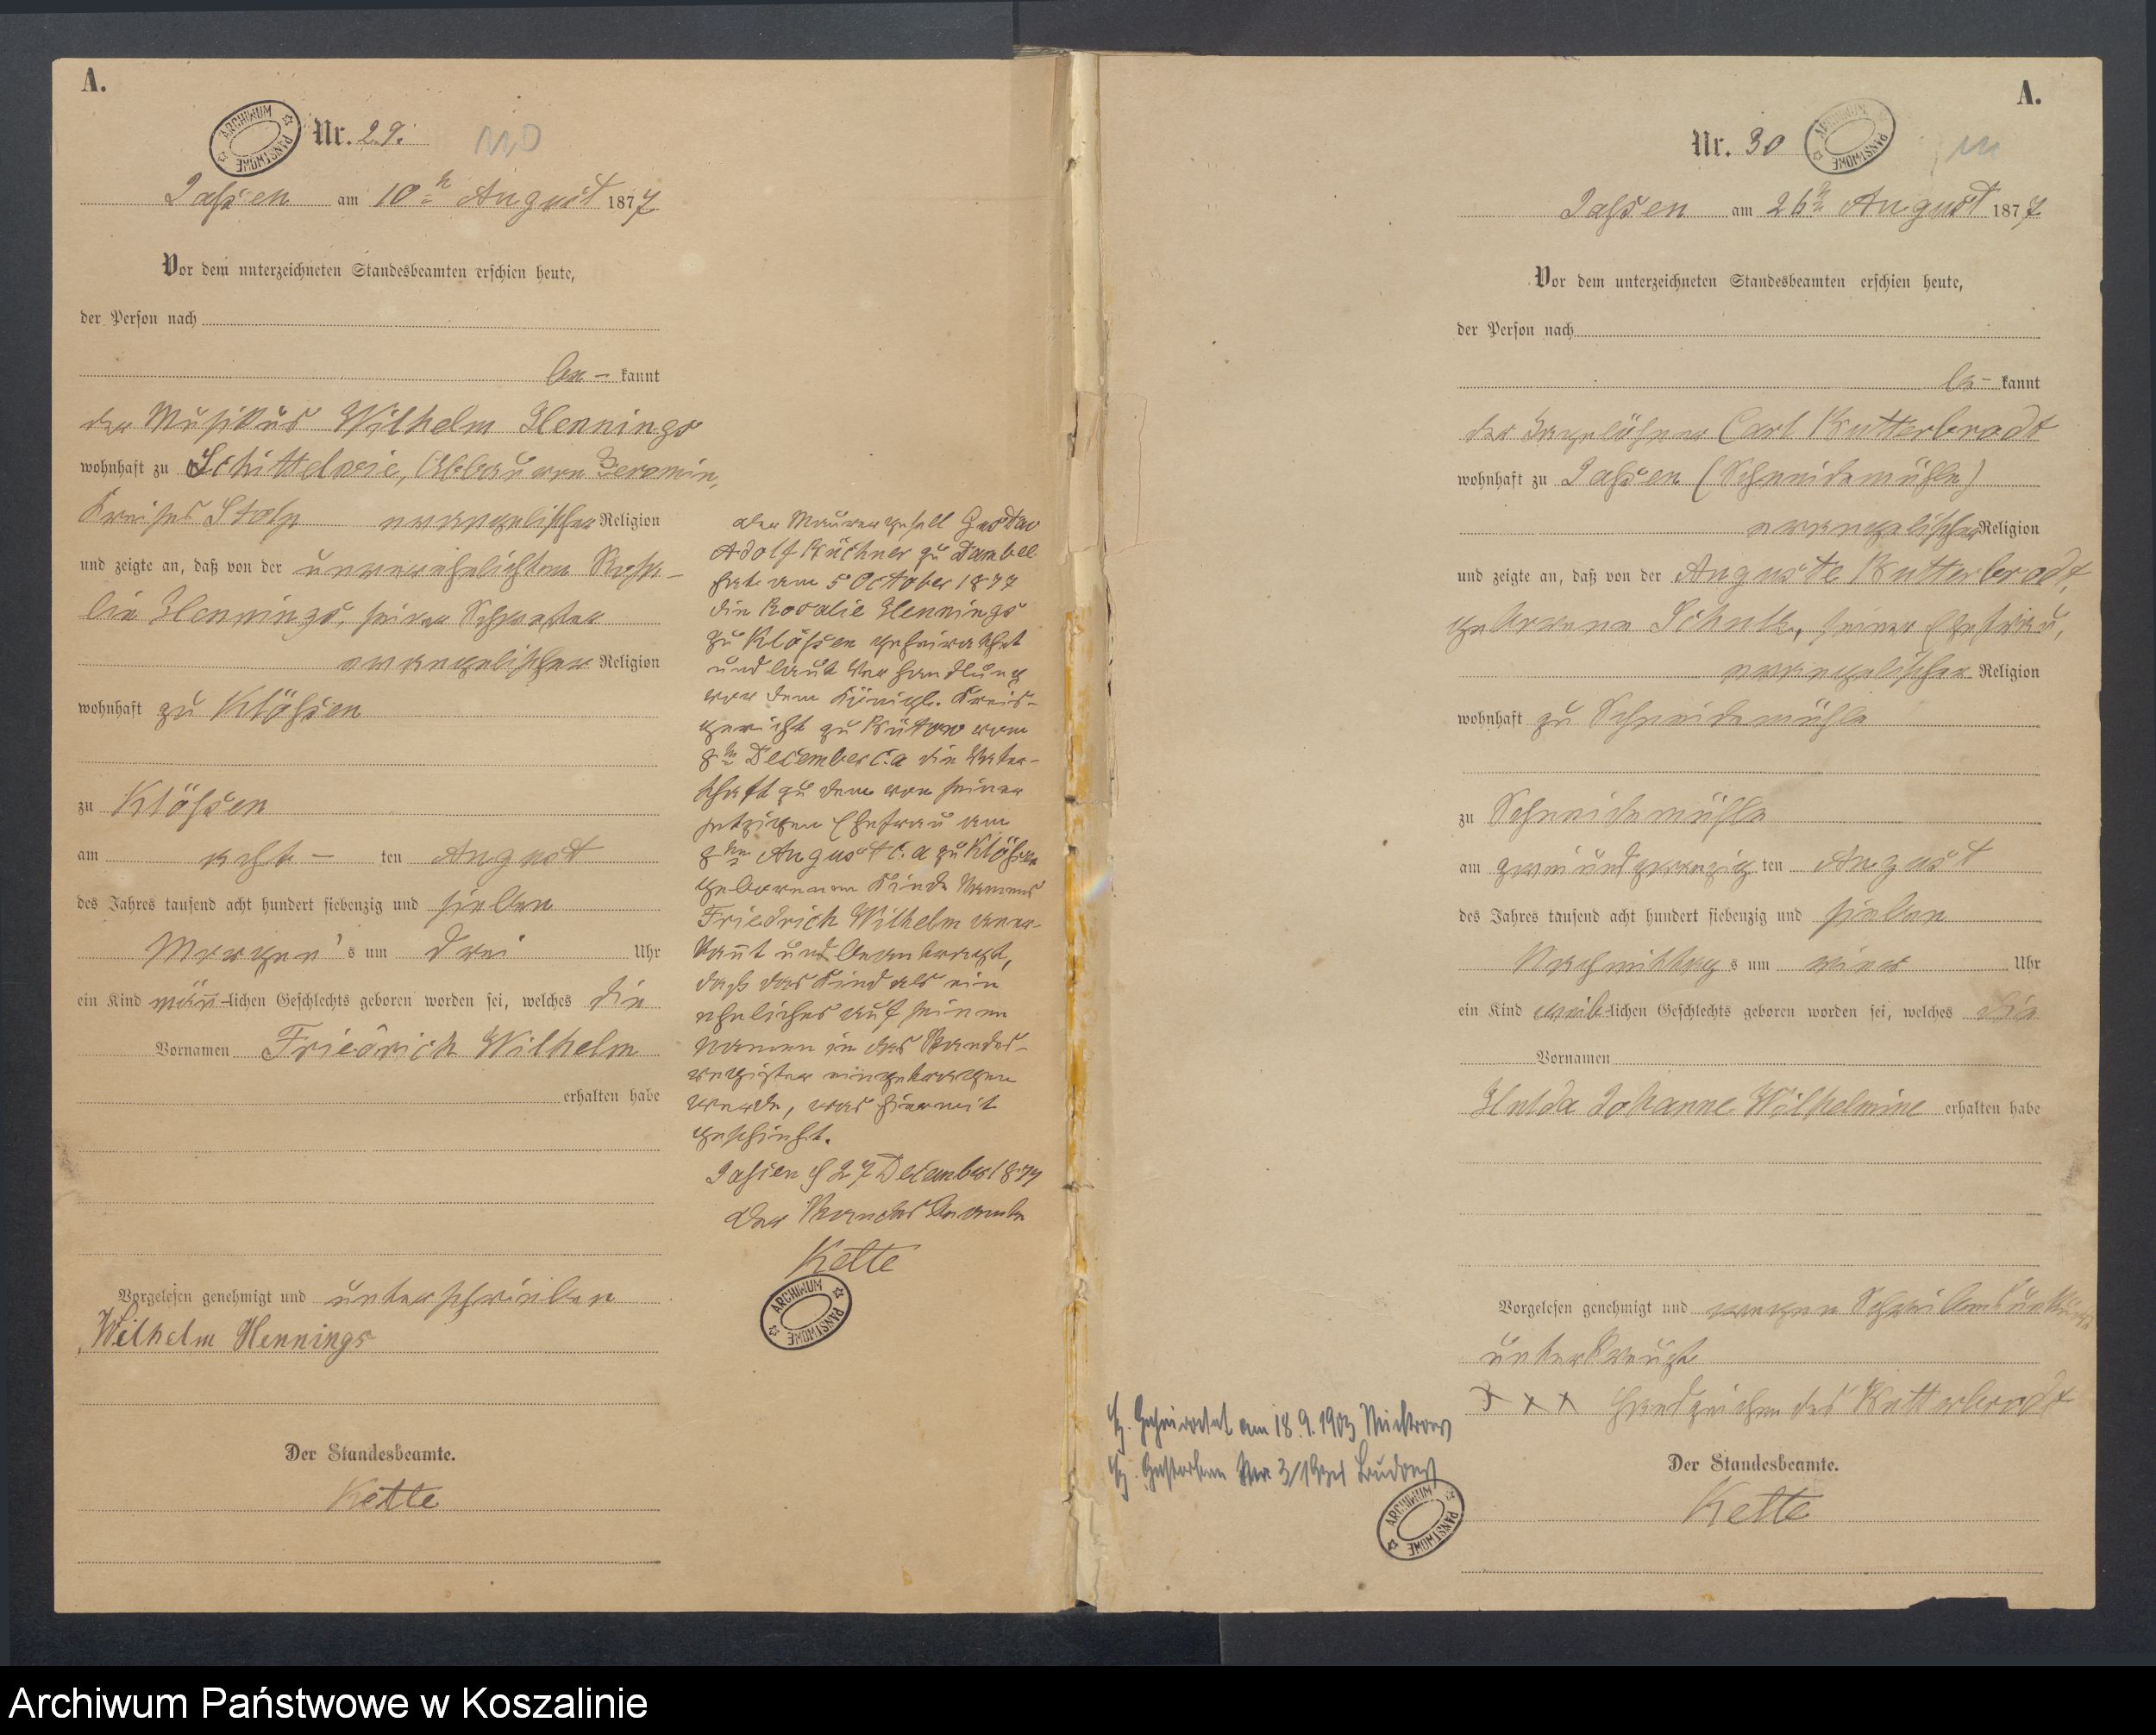 A.
ARCHIWUM PAŃSTWOWE
Nr. 29.
110
Jassen am 10ten August 1877
Vor dem unterzeichneten Standesbeamten erschien heute,
der Person nach
be- kannt
der Musikus Wilhelm Hennings
wohnhaft zu Schittelvie, Abbau von Zeromin,
Kreises Stolp evangelischer Religion
und zeigte an, daß von der unverehelichten Rosa-
lie Hennings, seiner Schwester
evangelischer Religion
wohnhaft zu Klößen
zu Klößen
am acht- ten August
des Jahres tausend acht hundert siebenzig und sieben
Morgen's um drei Uhr
ein Kind männ-lichen Geschlechts geboren worden sei, welches die
Vornamen Friedrich Wilhelm
erhalten habe
Vorgelesen genehmigt und unterschrieben
Wilhelm Hennings
Der Standesbeamte.
Kette
Der Maurergesell Gustav
Adolf Büchner zu Dambee
hat am 5 October 1877
die Rosalie Hennings
zu Klößen geheirathet
und laut Verhandlung
vor dem Königl. Kreis-
gericht zu Bütow vom
8ten December c.a die Vater-
schaft zu dem von seiner
jetzigen Ehefrau am
8ten August c.a zu Klößen
geborenen Kinde Namens
Friedrich Wilhelm aner-
kannt und beantragt,
daß das Kind als ein
eheliches auf seinen
Namen in das Standes-
register eingetragen
werde, was hiermit
geschieht.
Jassen d 27 December 1877
Der Standesbeamte
Kette
ARCHIWUM PAŃSTWOWE
A.
Nr. 30
ARCHIWUM PAŃSTWOWE
111
Jassen am 26ten August 1877
Vor dem unterzeichneten Standesbeamten erschien heute,
der Person nach
be- kannt
der Tagelöhner Carl Butterbrodt
wohnhaft zu Jassen (Schneidemühle)
evangelischer Religion
und zeigte an, daß von der Auguste Butterbrodt,
geborene Schulz, seiner Ehefrau,
evangelischer Religion
wohnhaft zu Schneidemühle
zu Schneidemühle
am zweiundzwanzig ten August
des Jahres tausend acht hundert siebenzig und sieben
Nachmittag s um einer Uhr
ein Kind weib-lichen Geschlechts geboren worden sei, welches die
Vornamen
Hulda Johanne Wilhelmine erhalten habe
Vorgelesen genehmigt und wegen Schreibensunkunde
unterkreuzt
x x x Handzeichen des Butterbrodt
Der Standesbeamte.
Kette
Geheiratet am 18.9.1903
Gestorben Nr. 3/
ARCHIWUM PAŃSTWOWE
Archiwum Państwowe w Koszalinie